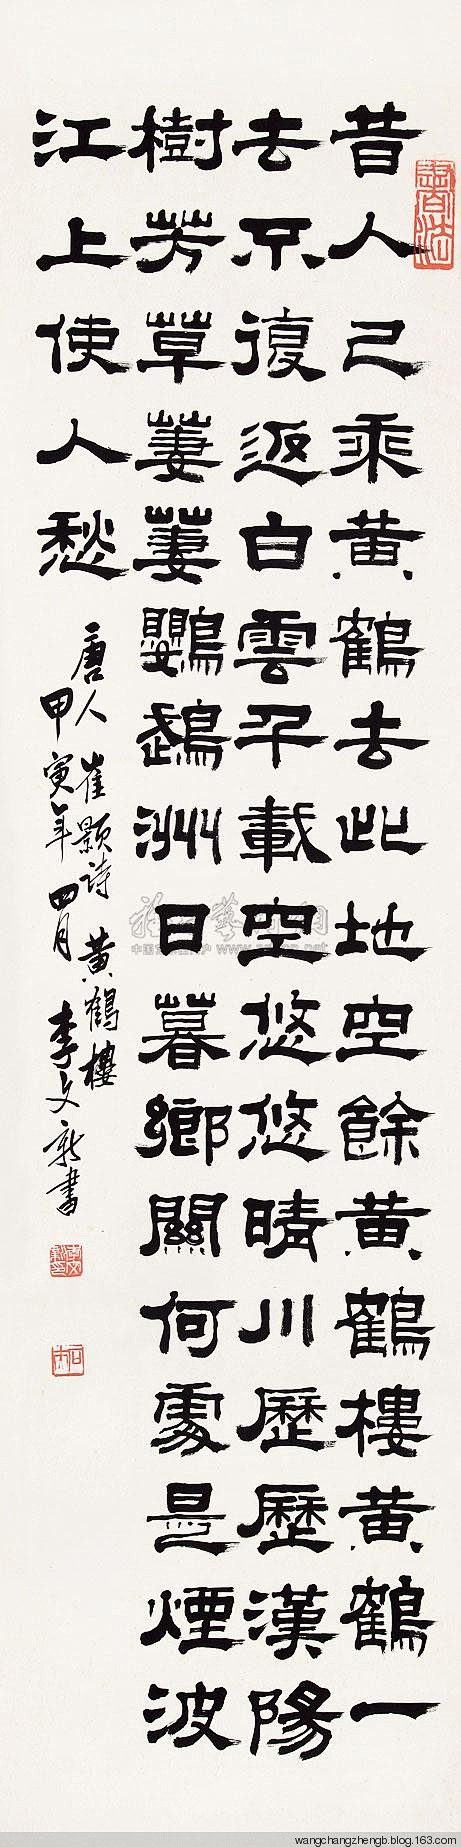 昔人已乘黄鶴去此地空餘黄鶴樓黄鶴一
去不復返白雲千載空悠悠晴川歷歷漢陽
樹芳草萋萋鸚鵡洲日暮鄉關何處是煙波
江上使人愁
唐人崔颢诗黄鶴樓
甲寅年四月李文新書
wangchangzhengb.blog.163.com